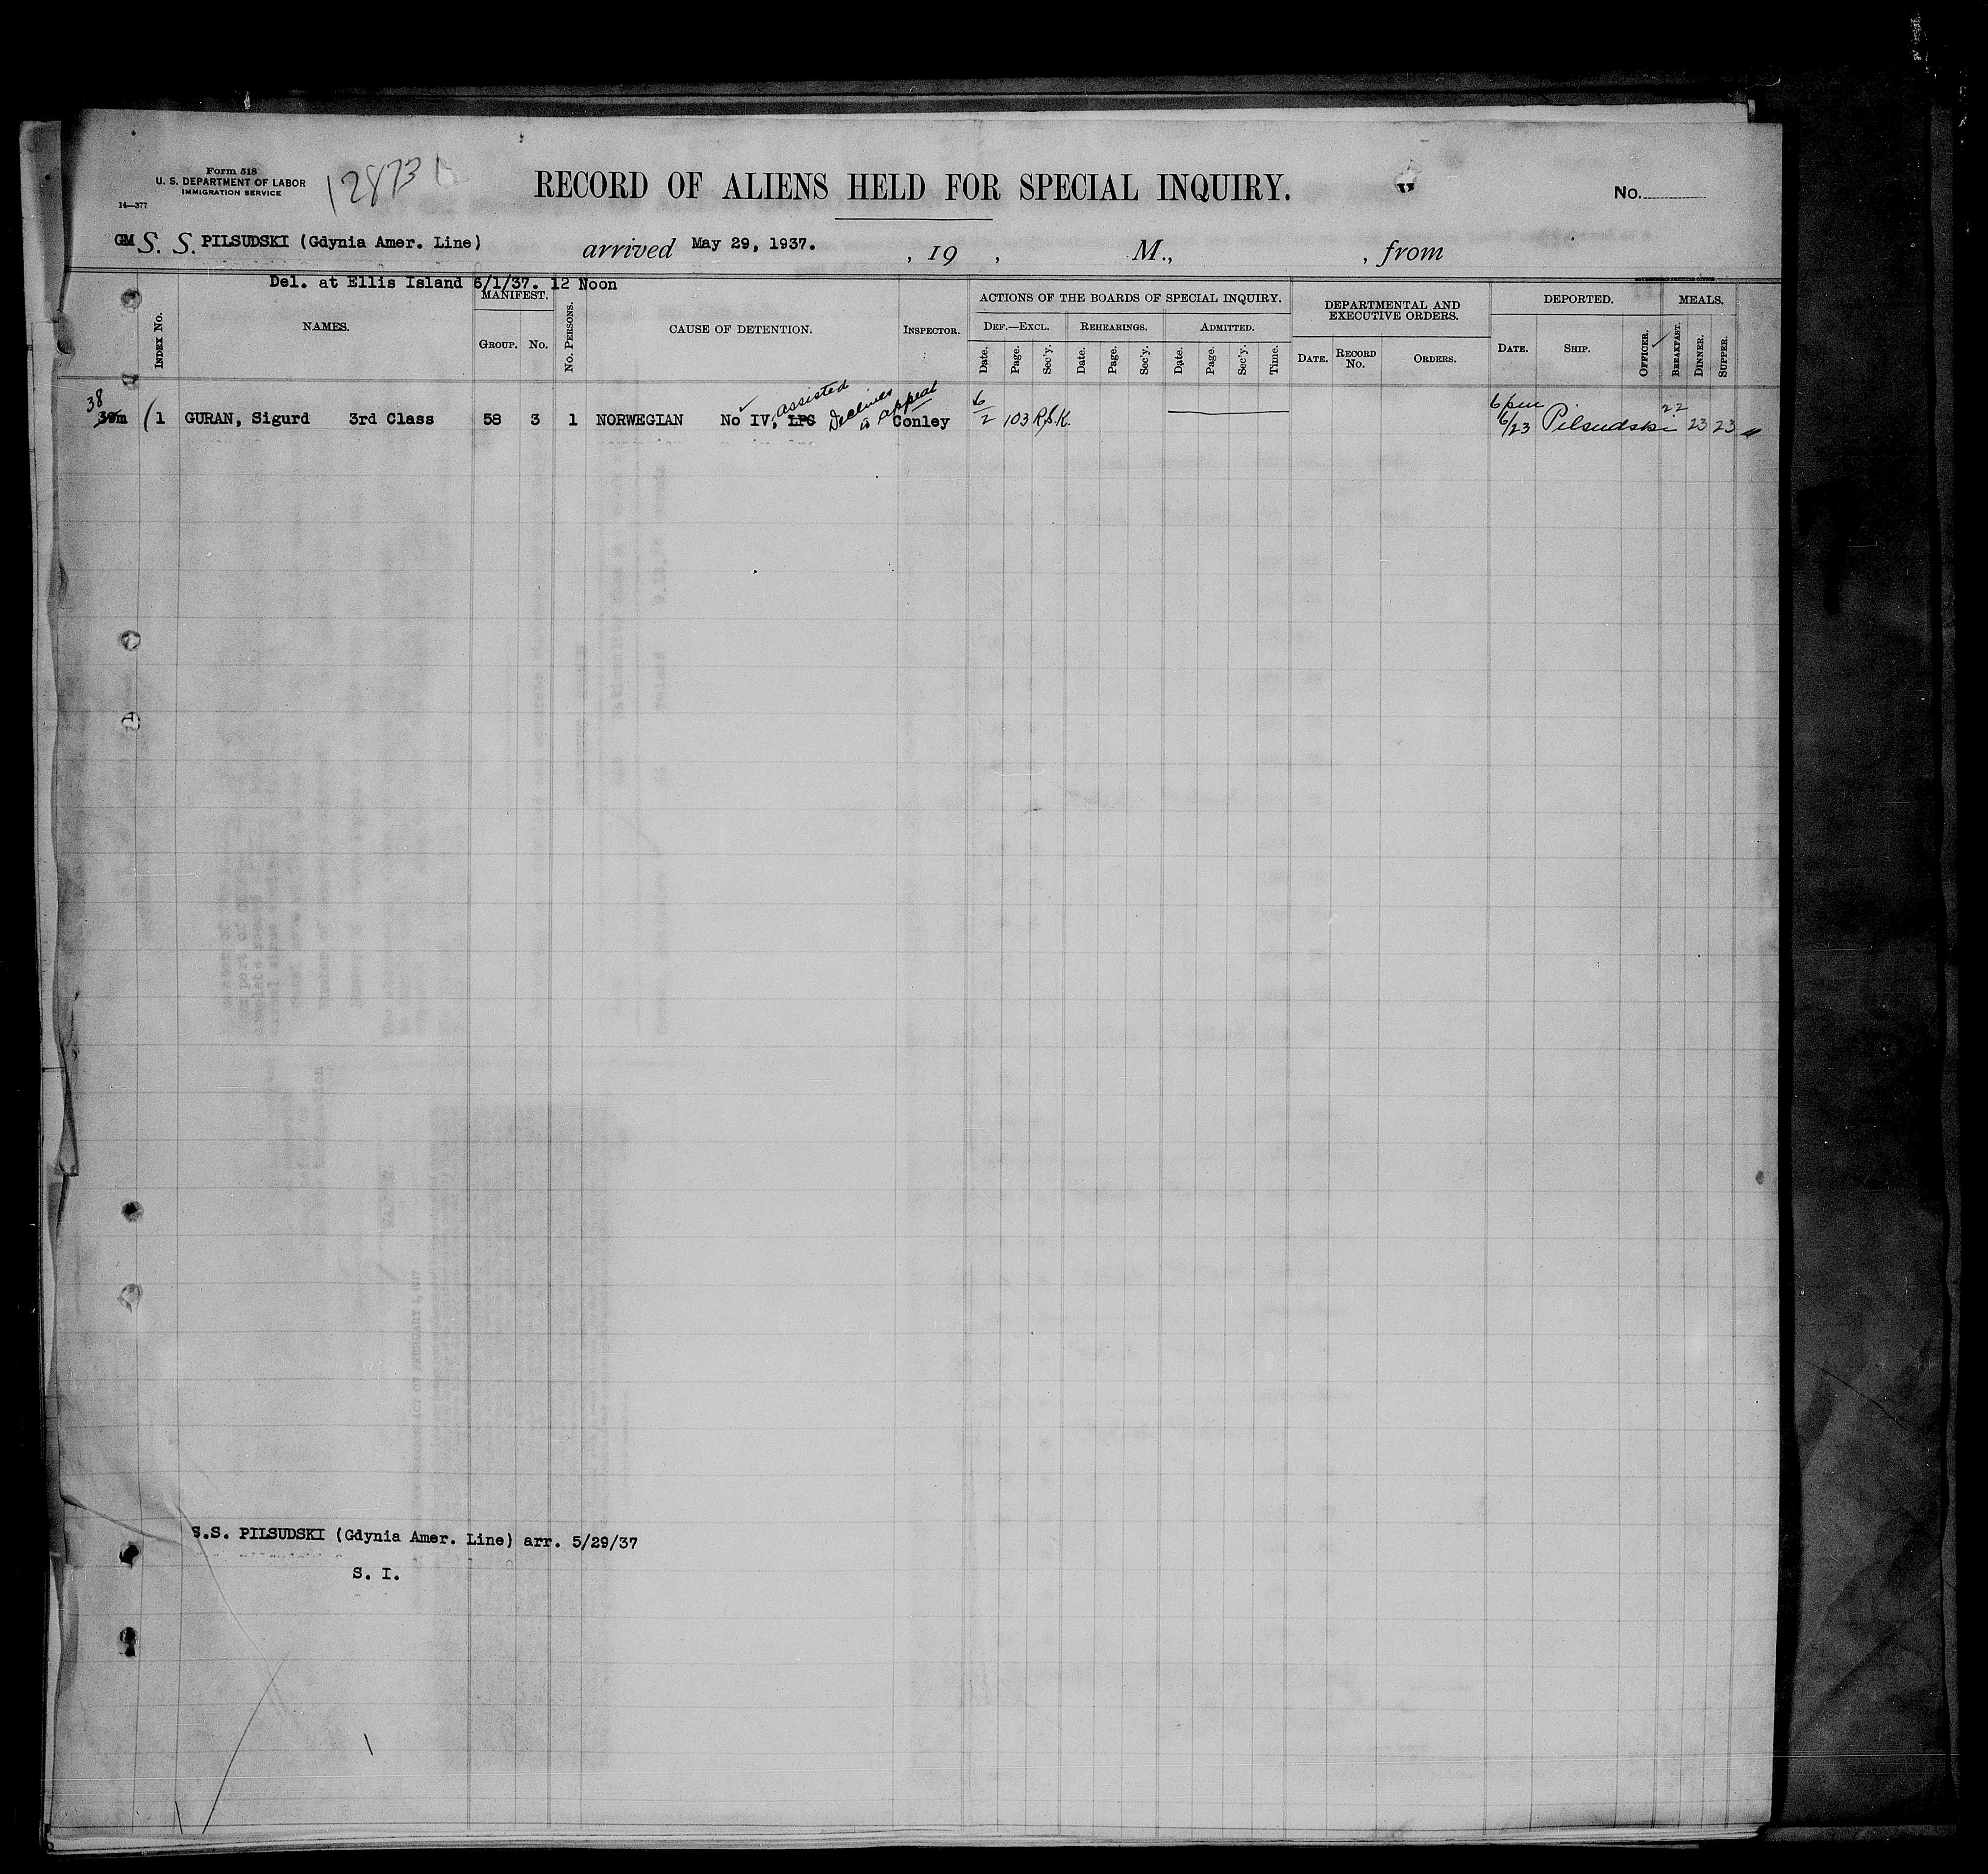 Form 518
U. S. DEPARTMENT OF LABOR
IMMIGRATION SERVICE
14—377
12873
RECORD OF ALIENS HELD FOR SPECIAL INQUIRY.
No.
GM S. S. PILSUDSKI (Gdynia Amer. Line) arrived May 29, 1937. , 19 , M., , from
Del. at Ellis Island 6/1/37. 12 Noon
INDEX No.
NAMES.
MANIFEST.
GROUP. No.
No. PERSONS.
CAUSE OF DETENTION.
INSPECTOR.
ACTIONS OF THE BOARDS OF SPECIAL INQUIRY.
DEF.—EXCL. REHEARINGS. ADMITTED.
Date. Page. Sec'y. Date. Page. Sec'y. Date. Page. Sec'y. Time.
DEPARTMENTAL AND
EXECUTIVE ORDERS.
DATE. RECORD No. ORDERS.
DEPORTED.
DATE. SHIP. OFFICER.
MEALS.
BREAKFAST. DINNER. SUPPER.
38 assisted Declines 6 6pm 22
39m 1 GURAN, Sigurd 3rd Class 58 3 1 NORWEGIAN No IV, LPC appeal Conley 2 103 6/23 Pilsudski 23 23
S.S. PILSUDSKI (Gdynia Amer. Line) arr. 5/29/37
S. I.